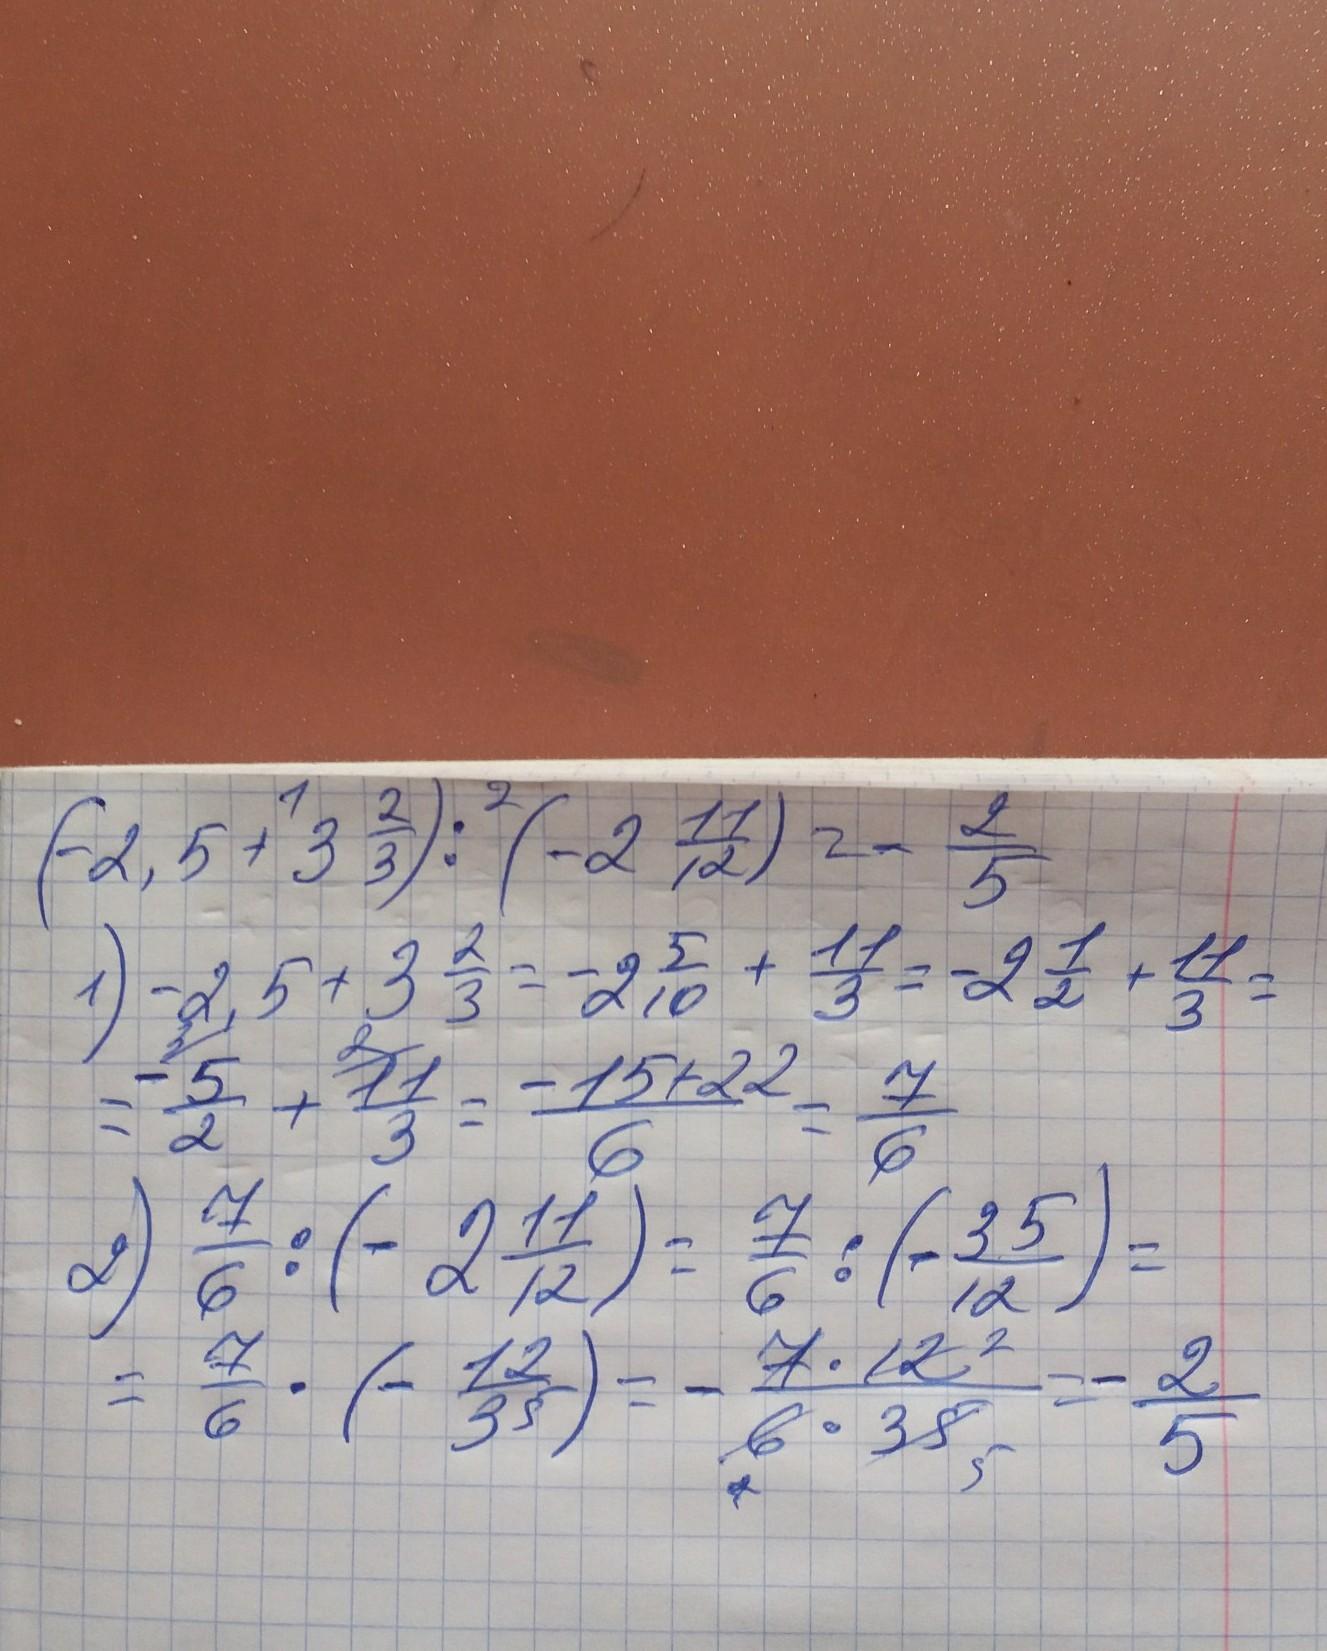 (-2,5 + ¹3 2/3) :² (-2 11/12) = - 2/5
1) -2,5 + 3 2/3 = -2 5/10 + 11/3 = -2 1/2 + 11/3 =
= - 5/2 + 11/3 = -15+22/6 = 7/6
2) 7/6 : (- 2 11/12) = 7/6 : (- 35/12) =
= 7/6 · (- 12/35) = - 7 · 12²/6 · 35 5 = - 2/5